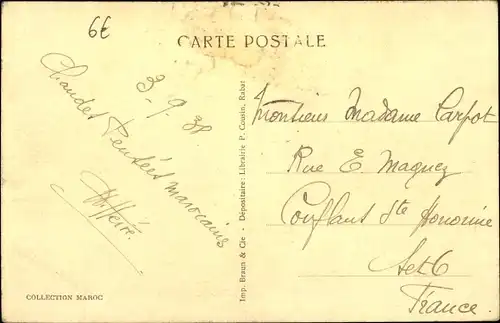 6€
CARTE POSTALE
3-9-38
Chaudes Pensées marocaines
Imp. Braun & Cie - Dépositaire : Librairie P. Cousin, Rabat
Monsieur Madame Carpot
Rue E. Maguez
Conflans Ste Honorine
S et O
France
COLLECTION MAROC